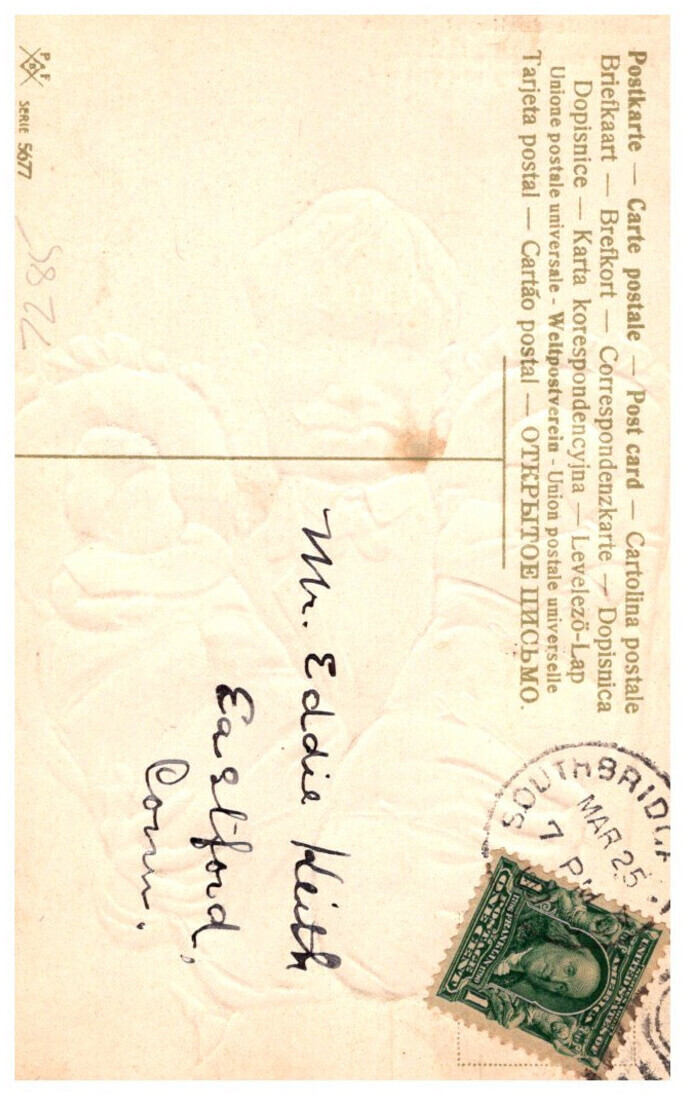 Postkarte — Carte postale — Post card — Cartolina postale
Briefkaart — Brefkort — Correspondenzkarte — Dopisnica
Dopisnice — Karta korespondencyjna — Levelező-Lap
Unione postale universale - Weltpostverein - Union postale universelle
Tarjeta postal — Cartão postal — ОТКРЫТОЕ ПИСЬМО.
SOUTHBRIDGE
MAR 25
7 PM
1
Mr. Eddie Keith
Eastford,
Conn.
P F B
SERIE 5677